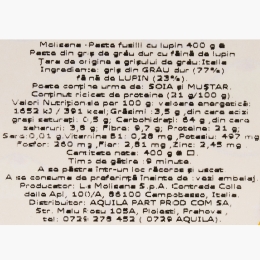 Molisana - Paste fusilli cu lupin 400 g e
Paste din griș de grâu dur cu făină de lupin
Țara de origine a grișului de grâu: Italia
Ingrediente: griș din GRÂU dur (77%)
fă nă de LUPIN (23%).
Poate conține urme de: SOIA și MUȘTAR.
Conținut ridicat de proteine (21 g/100 g)
Valori Nutriționale per 100 g: valoare energetică:
1652 kJ / 391 kcal; Grăsimi: 3,5 g, din care acizi
grași saturați: 0,5 g; Carbohidrați: 64 g, din care
zaharuri: 3,8 g; Fibre: 9,7 g; Proteine: 21 g;
Sare: 0,01 g Vitamina B1: 0,28 mg, Potasiu: 497 mg
Fosfor: 260 mg, Fier: 2,81 mg, Zinc: 2,45 mg
Cantitate netă: 400 g e
Timp de gătire: 9 minute.
A se păstra într-un loc răcoros și uscat
A se consuma de preferință înainte de: vezi ambalaj.
Producator: La Molisana S.p.A. Contrada Colle
delle Api, 100/A, 86100 Campobasso, Italia.
Distribuitor: AQUILA PART PROD COM SA,
Str. Malu Rosu 105A, Ploiesti, Prahova,
tel: 0729 278 452 ( 0729 AQUILA).